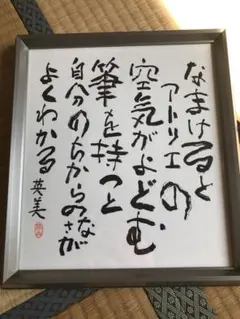 なまけると
アトリエの
空気がよどむ
筆を持つと
自分のちからのなさが
よくわかる
英美